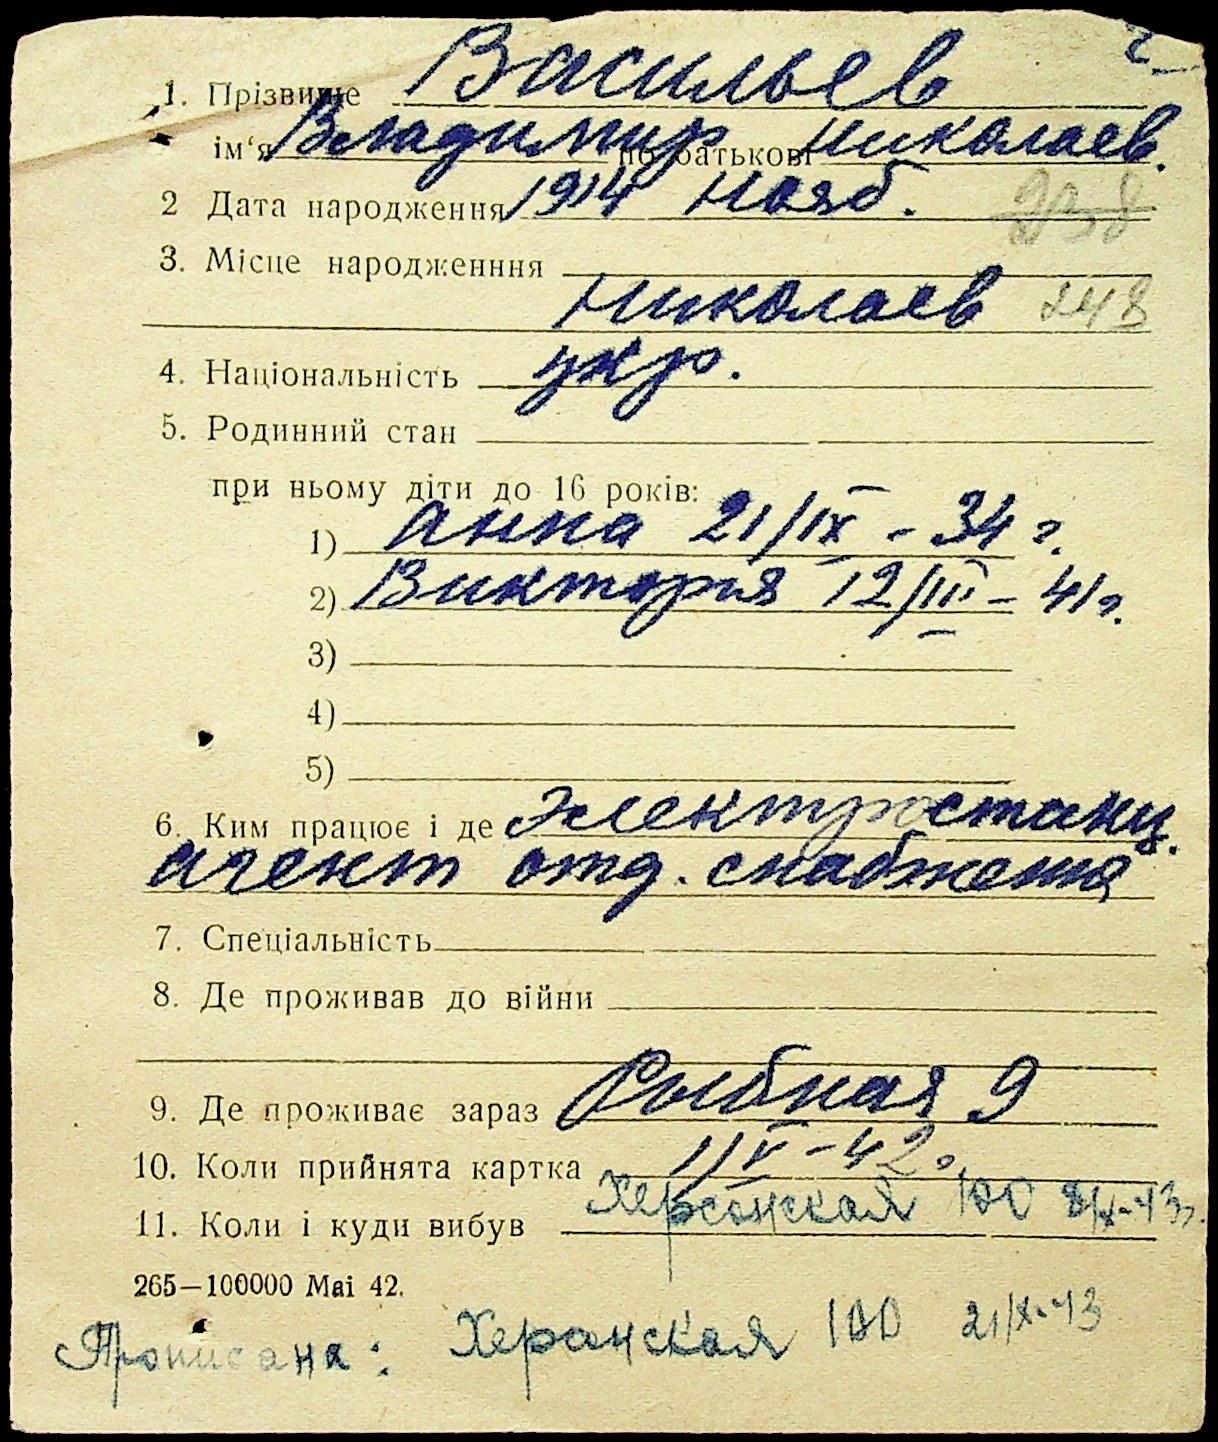 1. Прізвище Васильев
ім‘я Владимир по батькові Николаев.
2 Дата народження 1914 нояб. 238
3. Місце народженння
Николаев 248
4. Національність укр.
5. Родинний стан
при ньому діти до 16 років:
1) Анна 21/IX - 34 г.
2) Виктория 12/III - 41 г.
3)
4)
5)
6. Ким працює і де Электростанц.
агент отд. снабжения
7. Спеціальність
8. Де проживав до війни
9. Де проживає зараз Рыбная 9
10. Коли прийнята картка 1/V - 42 г.
11. Коли і куди вибув Херсонская 100 8/X-43г.
265—100000 Mai 42.
Прописана: Херсонская 100 21/X-43